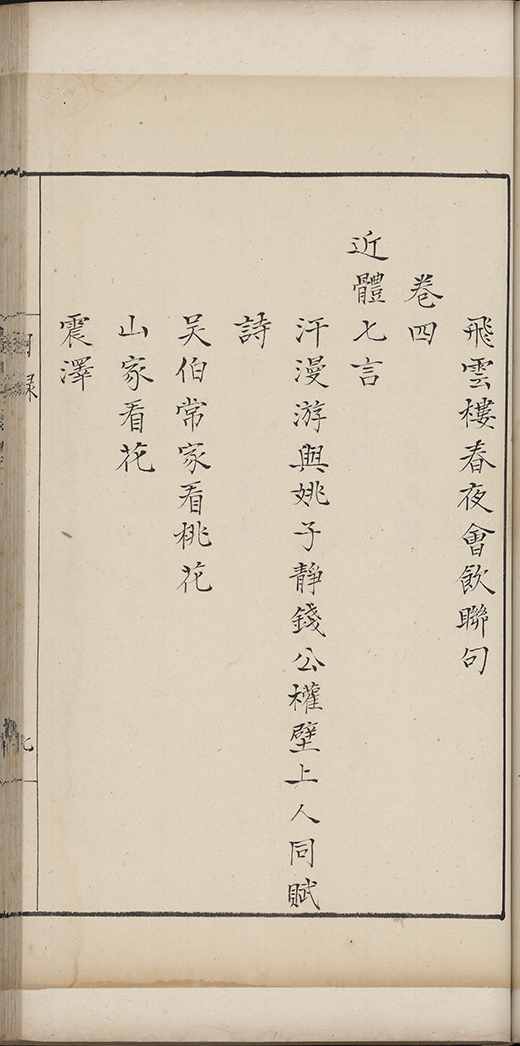 飛雲樓春夜會飲聯句
卷四
近體七言
汗漫游與姚子靜錢公權壁上人同賦
詩
吴伯常家看桃花
山家看花
震澤
目錄